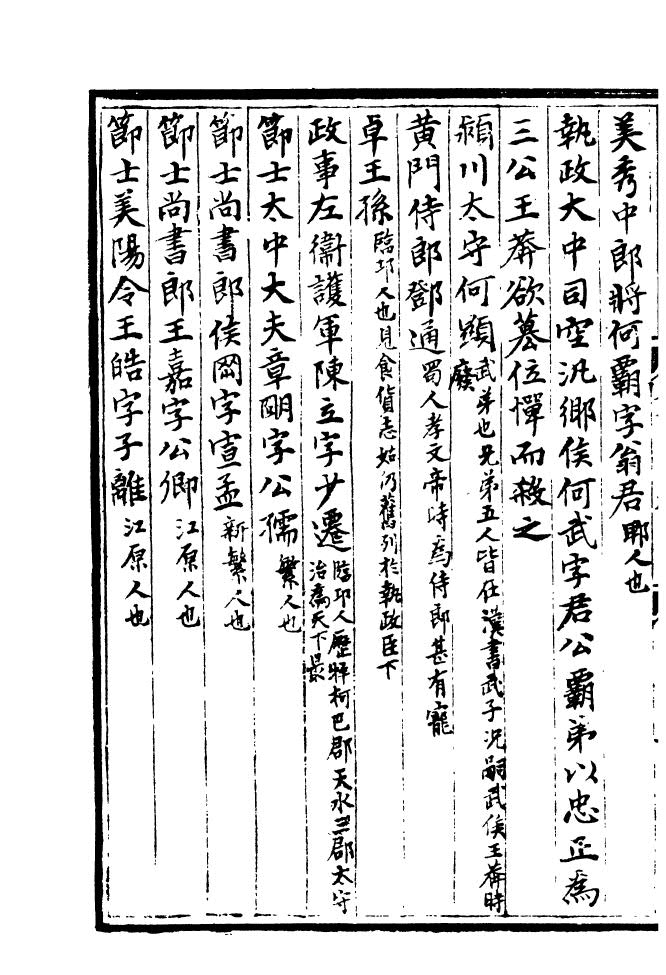 美秀中郎將何霸字翁君郫人也
執政大中司空汎鄉侯何武字君公霸弟以忠正為
三公王莽欲墓位憚而殺之
潁川太守何顯武弟也兄弟五人皆仕漢書武子況嗣武侯王莽時廢
黃門侍郎鄧通蜀人孝文帝時為侍郎甚有寵
卓王孫臨邛人也見食貨志姑仍舊列於執政臣下
政事左衞護軍陳立字少遷臨邛人歷牂柯巴郡天水三郡太守治為天下最
節士太中大夫章明字公孺繁人也
節士尚書郎侯罔字宣孟新繁人也
節士尚書郎王嘉字公卿江原人也
節士美陽令王皓字子離江原人也